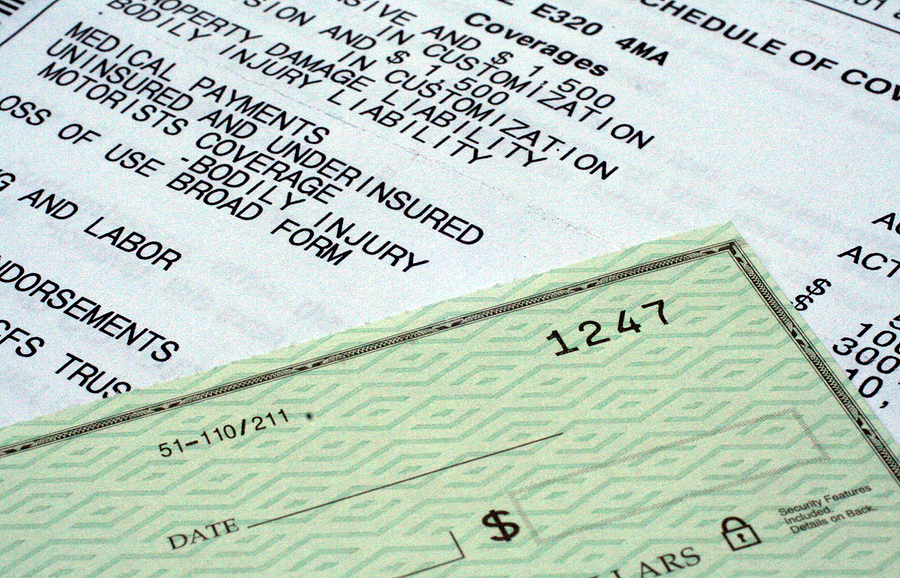 CHEDULE OF COV
E320 4MA
Coverages
SIVE AND $ 1,500
IN CUSTOMIZATION
SION AND $ 1,500
IN CUSTOMIZATION
ROPERTY DAMAGE LIABILITY
BODILY INJURY LIABILITY
MEDICAL PAYMENTS
UNINSURED AND UNDERINSURED
MOTORISTS COVERAGE
-BODILY INJURY
OSS OF USE BROAD FORM
G AND LABOR
NDORSEMENTS
CFS TRUS
ACT
$
$
100
300
10,
1247
51-110/211
DATE
$
LLARS
Security Features
Included.
Details on Back.